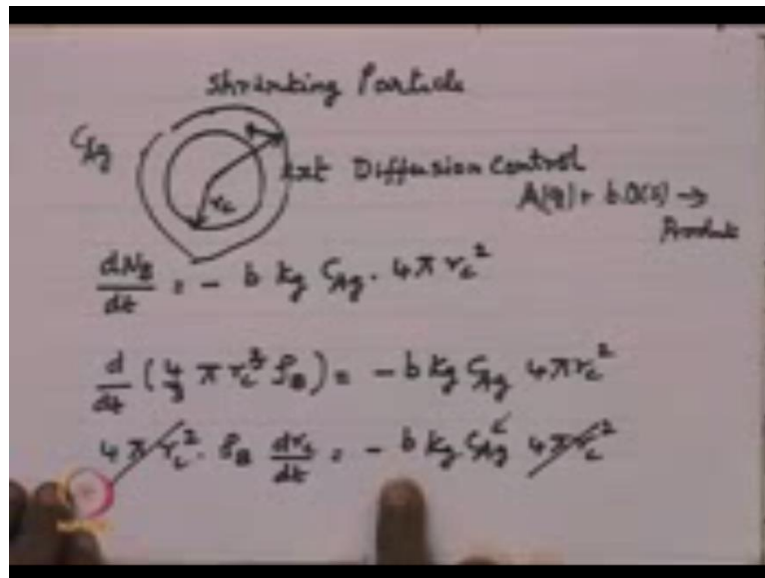 Shrinking Particle
C_Ag
ext Diffusion Control
r_c
A(g) + b.B(s) →
Products
dN_B/dt = - b k_g C_Ag . 4π r_c²
d/dt (4/3 π r_c³ ρ_B) = - b k_g C_Ag 4π r_c²
4π r_c² . ρ_B dr_c/dt = - b k_g C_Ag 4π r_c²